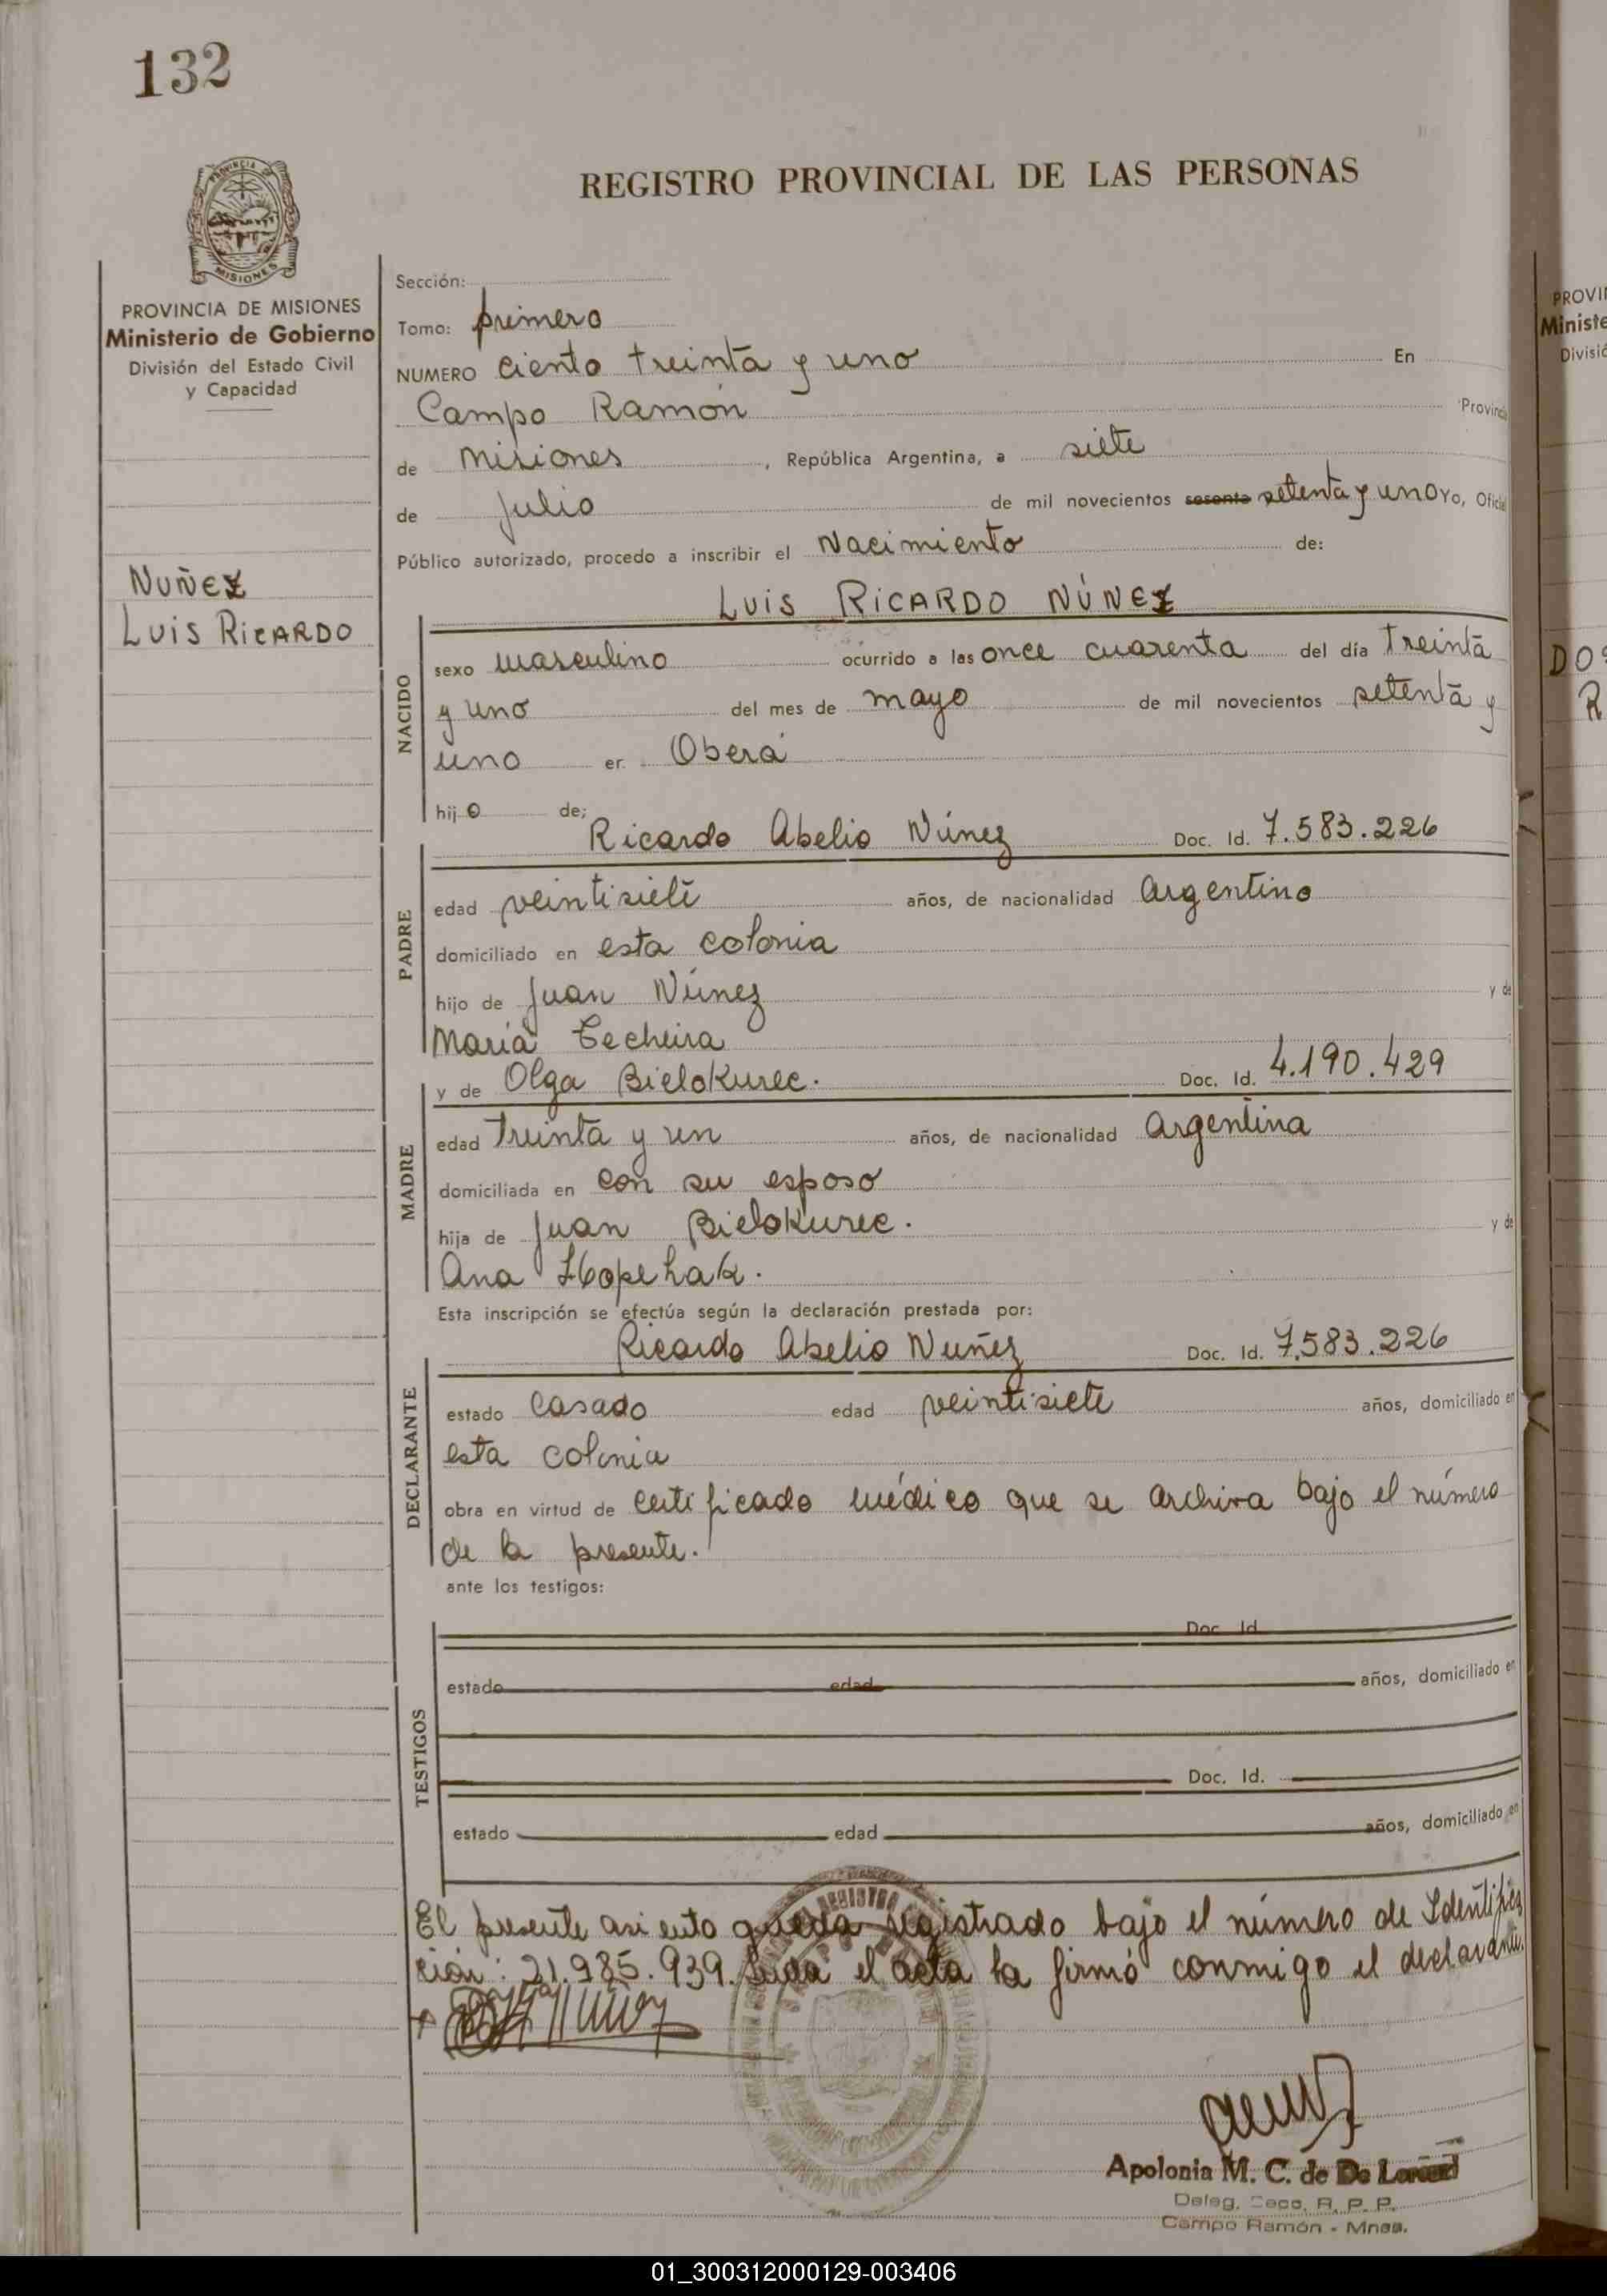 132
REGISTRO PROVINCIAL DE LAS PERSONAS
PROVINCIA DE MISIONES
Ministerio de Gobierno
División del Estado Civil
y Capacidad
NUÑEZ
LUIS RICARDO
Sección:
Tomo: primero
NUMERO ciento treinta y uno En
Campo Ramón Provincia
de Misiones, República Argentina, a siete
de Julio de mil novecientos sesenta setenta y uno Yo, Oficial
Público autorizado, procedo a inscribir el Nacimiento de:
LUIS RICARDO NÚNEZ
NACIDO
sexo masculino ocurrido a las once cuarenta del día treinta
y uno del mes de mayo de mil novecientos setenta y
uno en Oberá
hijo de;
Ricardo Abelio Núnez Doc. Id. 7.583.226
PADRE
edad veintisiete años, de nacionalidad Argentino
domiciliado en esta colonia
hijo de Juan Núnez y de
María Techeira
y de Olga Bielokurec. Doc. Id. 4.190.429
MADRE
edad treinta y un años, de nacionalidad Argentina
domiciliada en con su esposo
hija de Juan Bielokurec. y de
Ana
Esta inscripción se efectúa según la declaración prestada por:
Ricardo Abelio Nuñez Doc. Id. 7.583.226
DECLARANTE
estado casado edad veintisiete años, domiciliado en
esta colonia
obra en virtud de certificado médico que se archiva bajo el número
de la presente.
ante los testigos:
TESTIGOS
Doc. Id.
estado edad años, domiciliado en
Doc. Id.
estado edad años, domiciliado en
El presente asiento queda registrado bajo el número de Identifica
ción: 21.985.939. Leída el acta la firmó conmigo el declarante.
Apolonia M. C. de De
Deleg. Secc. R. P. P.
Campo Ramón - Mnes.
PROVI
Ministe
Divisió
DOS
R
01_300312000129-003406